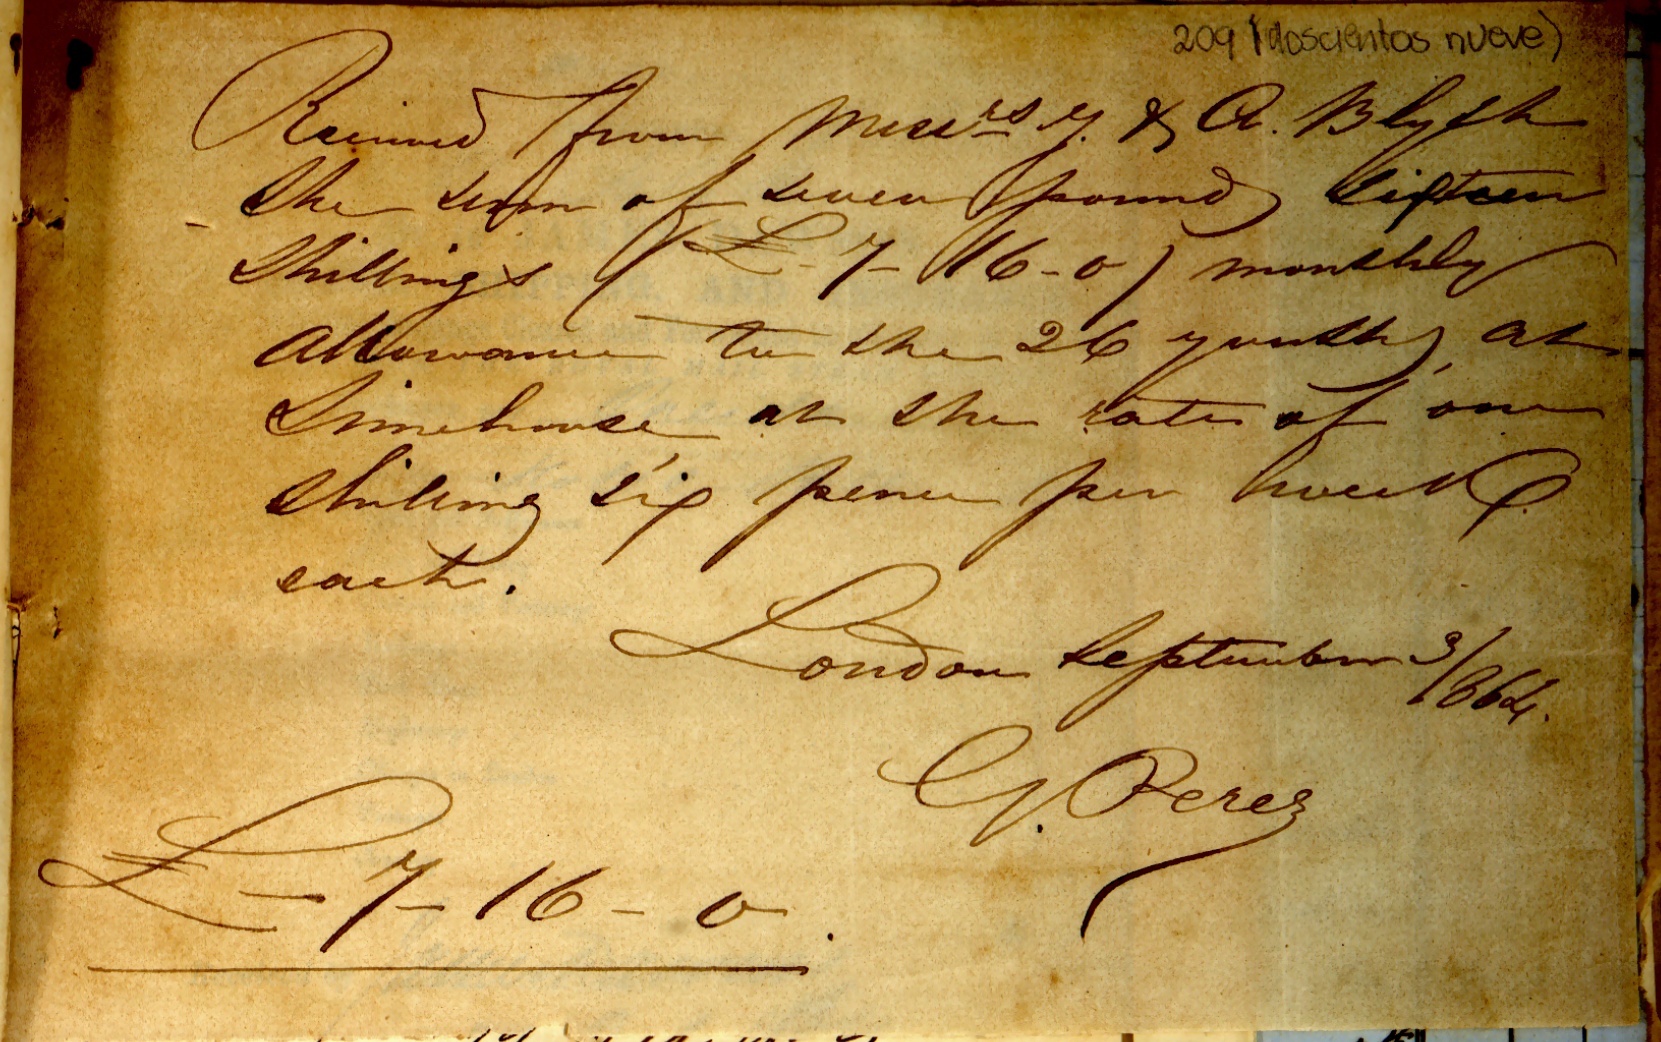 209 (doscientos nueve)
Received from Messrs J. & A. Blyth
the sum of seven pounds sixteen
Shillings (£-7-16-0) monthly
allowance to the 26 youths, at
Limehouse at the rate of one
shilling six pence per week
each.
London September 3/1864.
G. Perez
£-7-16-0.